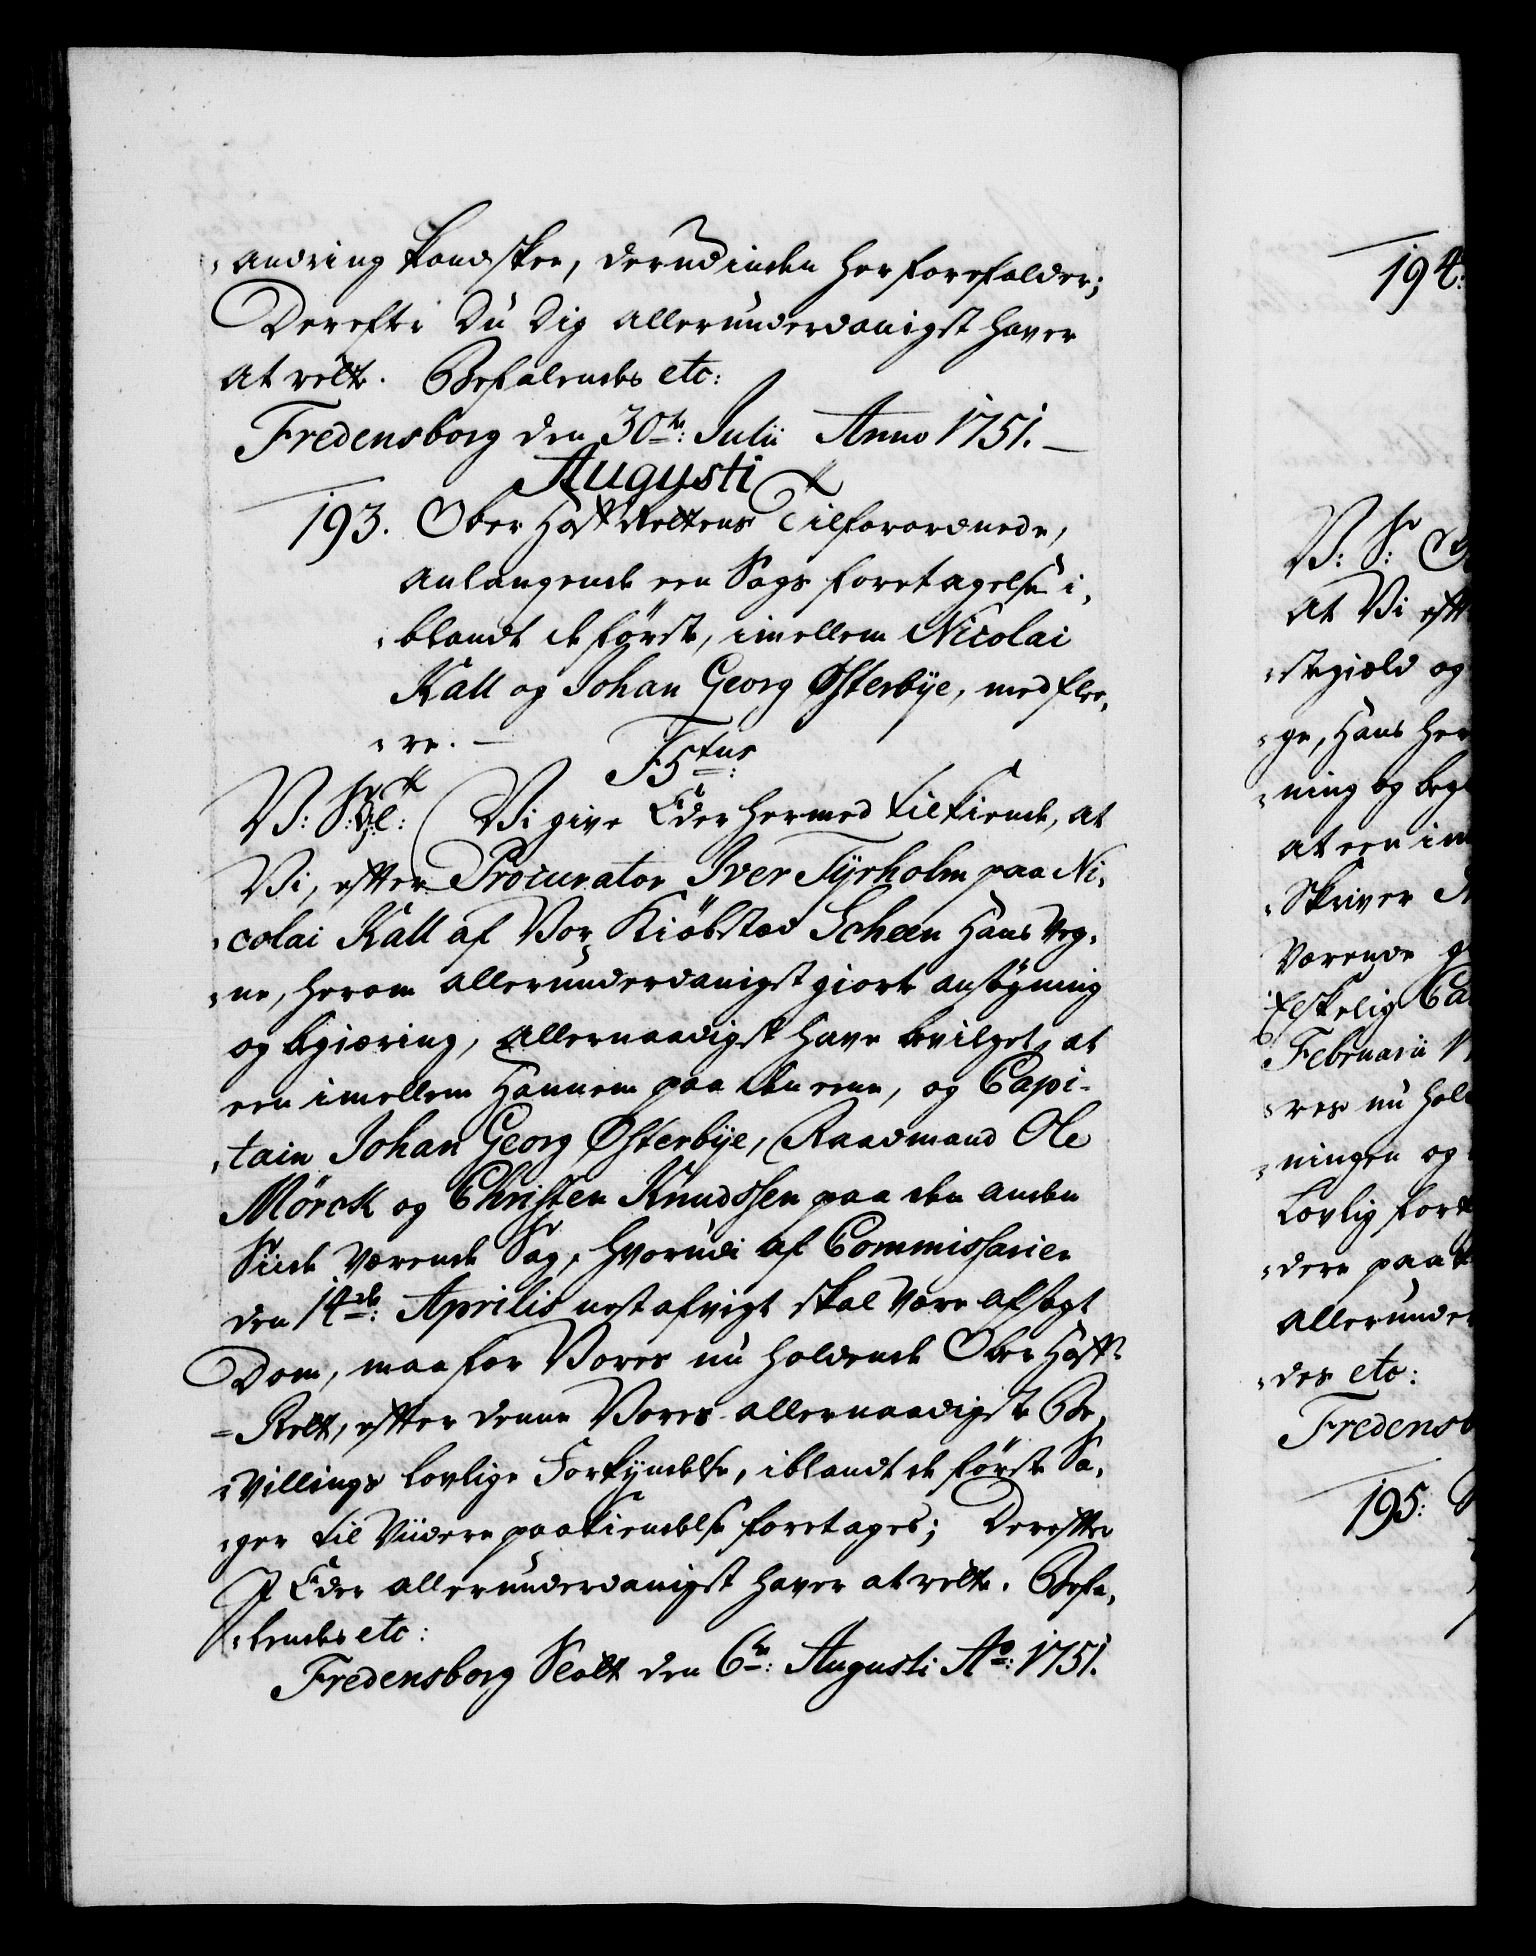 andring kand skee, dersom inden her forefalder;
Derefter du dig allerunderdanigst haver
at rette. Befalendes etc:
Fredensborg den 30te: Julii Anno 1751.
Augusti
193. Ober Hoff Rettens Tilforordnede,
anlangende een Sags foretagelse i-
blandt de første, imellem Nicolai
Kall og Johan Georg Østerbye, med flee-
re.
F5tus
V: S: G: T: Vi give Eder hermed tilkiende, at
Vi, efter Procurator Iver Tyrholm paa Ni-
colai Kall af Vor Kiøbstad Scheen Hans Veg-
ne, herom allerunderdanigst giorte ansøgning
og begiæring, allernaadigst have bevilget, at
een imellem Hannem paa den eene, og Capi-
tain Johan Georg Østerbye, Raadmand Ole
Mörck og Christen Knudssen paa den anden
Siide værende Sag, hvorudi af Commissarier
den 14de: Aprilis nest afvigt skal være afsagt
Dom, maa for Vores nu holdende Ober Hoff-
Rett, efter denne Vores allernaadigste Be-
villings lovlige Forkyndelse, iblandt de første Sa-
ger til Viidere paakiendelse foretages; Derefter
I Eder allerunderdanigst haver at rette. Befa-
lendes etc:
Fredensborg Slott den 6te: Augusti Ao: 1751.
194:
V: S:
At Vi eft
stegield og
ge, Hans her
ning og beg
at een im
Skriver
værende
Elskelig Ca
Februarii
res nu hol
ningen og
Lovlig fork
dere paak
allerunder
des etc:
Fredensb
195: